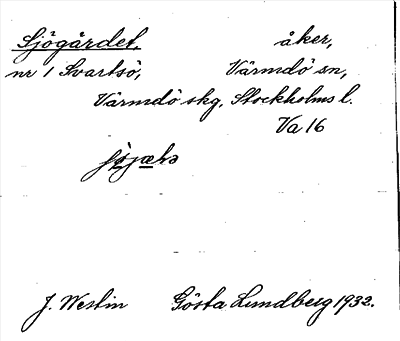 Sjögärdet. åker,
nr 1 Svartsö, Värmdö sn,
Värmdö skg, Stockholms l.
Va 16
J. Westin Gösta Lundberg 1932.